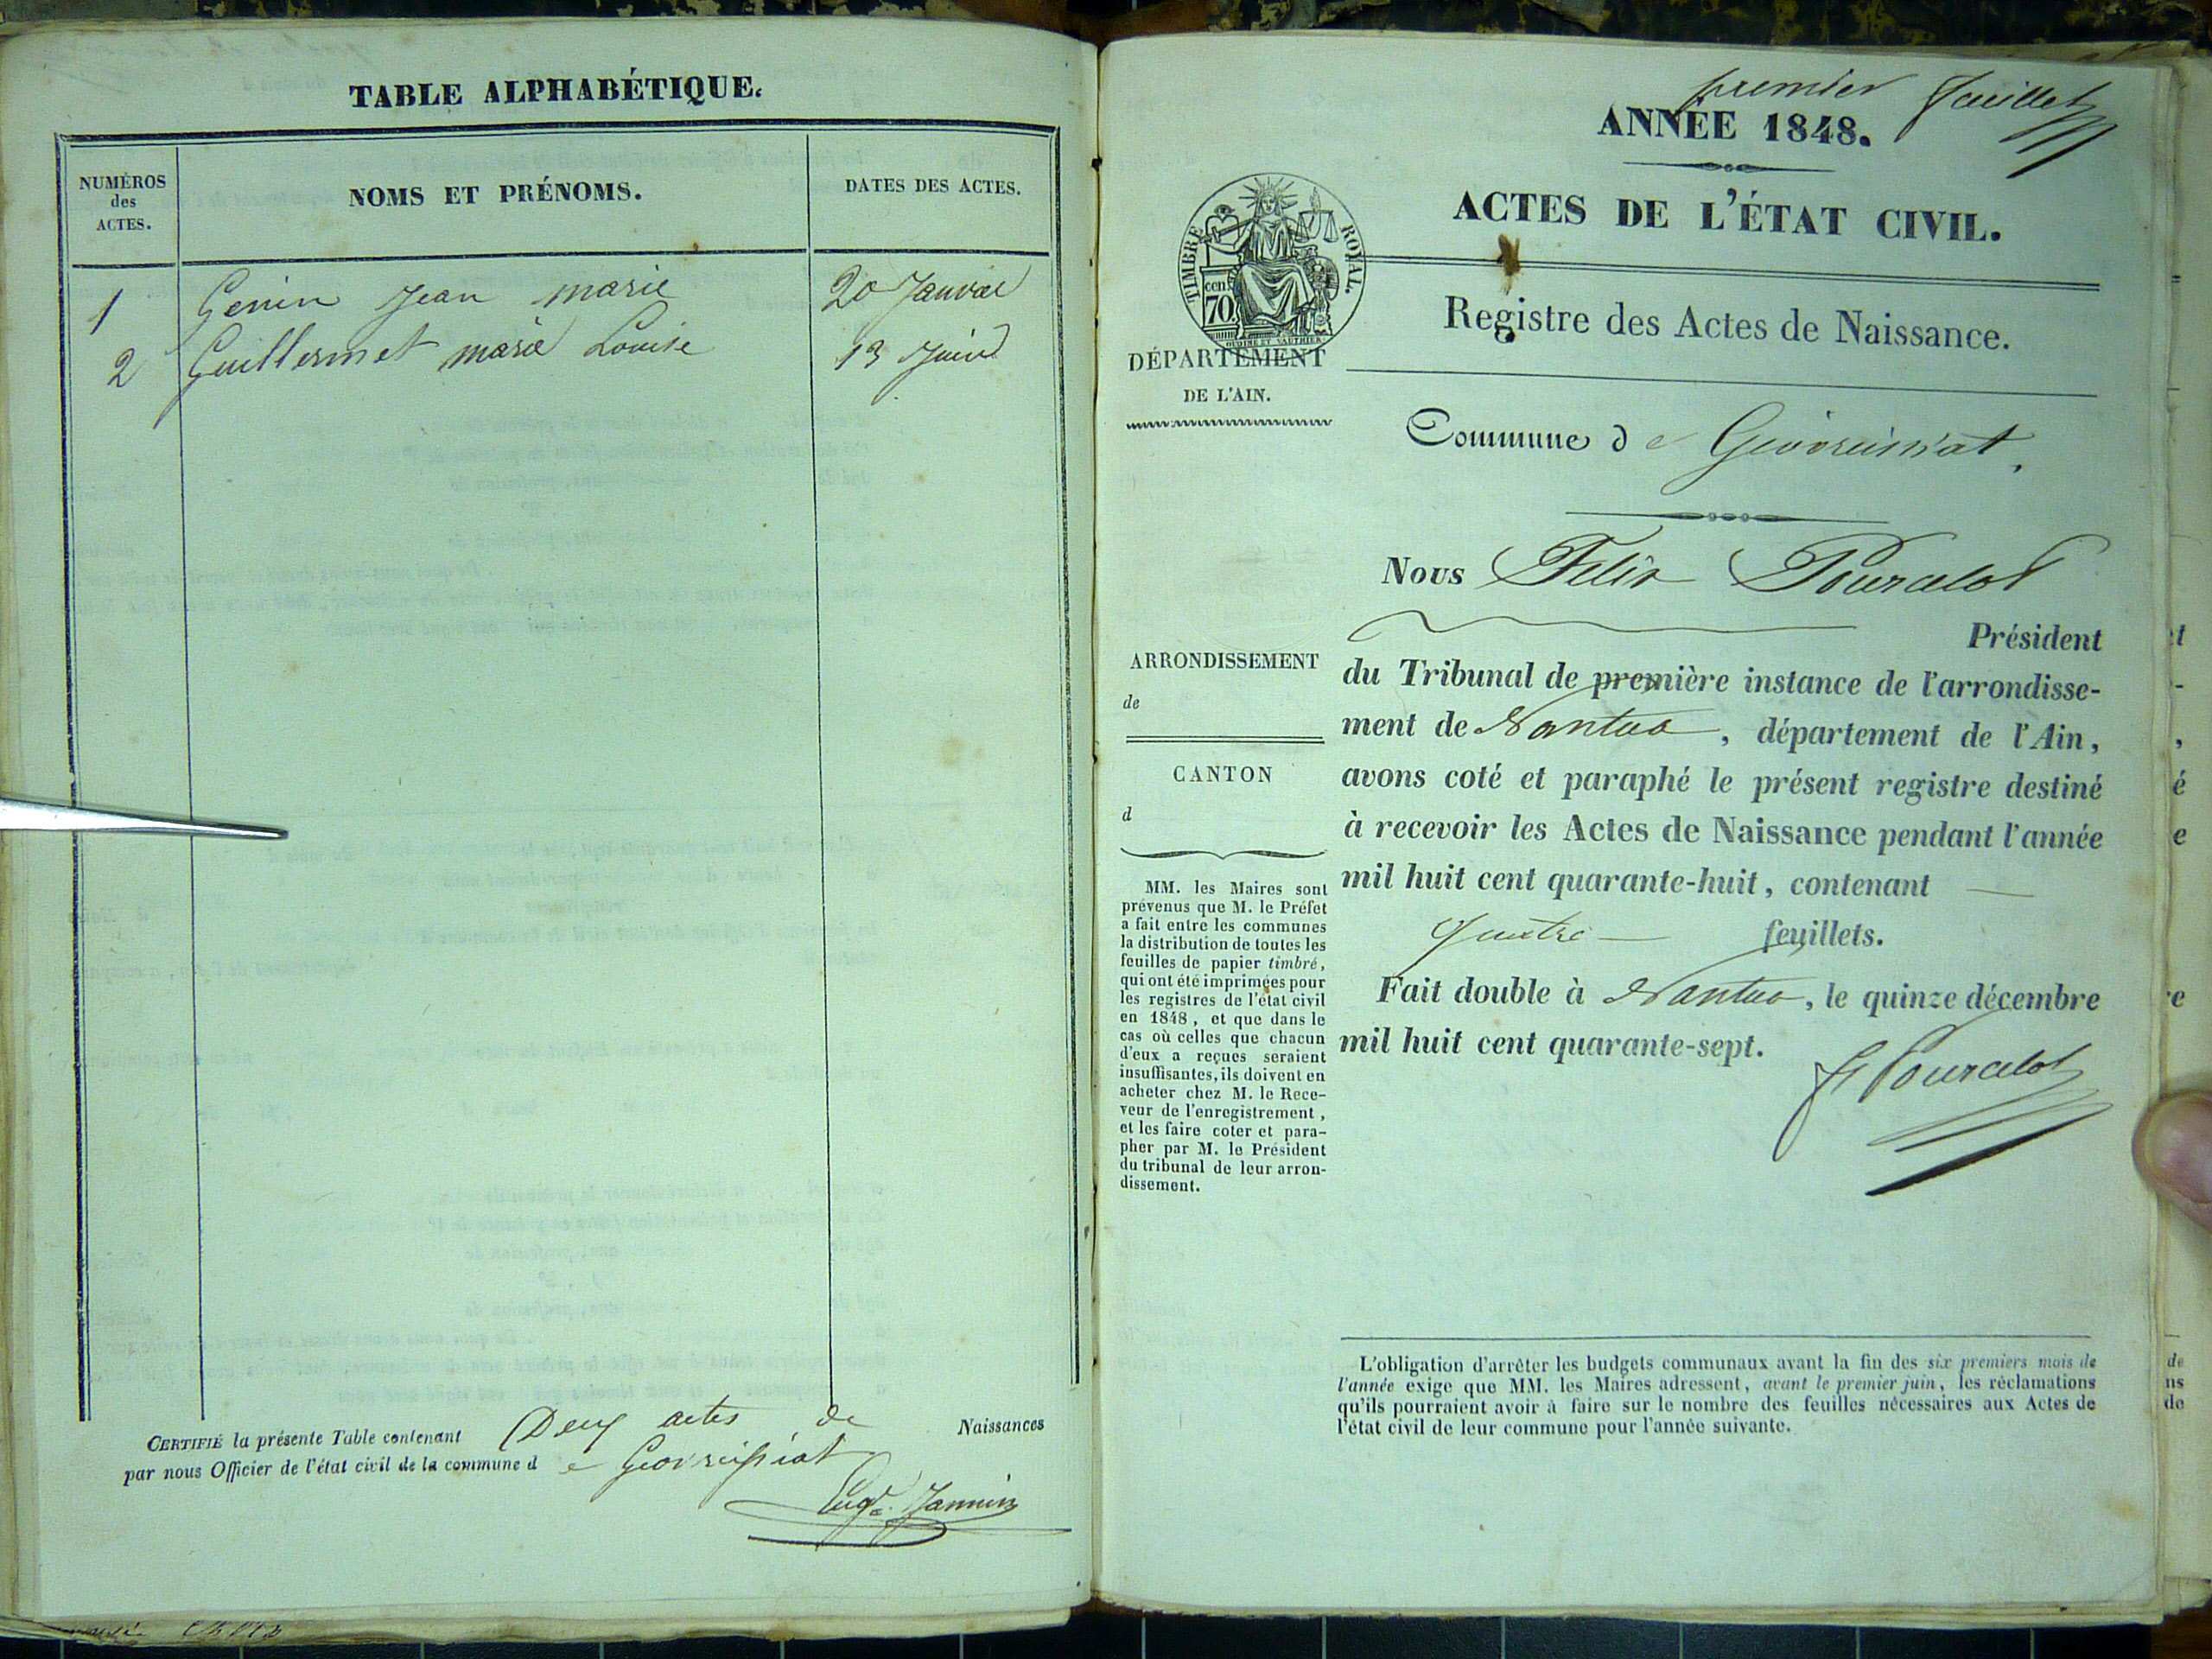 TABLE ALPHABÉTIQUE.
NUMÉROS
des
ACTES.
NOMS ET PRÉNOMS.
DATES DES ACTES.
1 Genin Jean marie 20 Janvier
2 Guillermet marie Louise 13 Juin
CERTIFIÉ la présente Table contenant Deux actes de Naissances
par nous Officier de l'état civil de la commune d e Geovreissiat
premier feuillet
ANNÉE 1848.
ACTES DE L'ÉTAT CIVIL.
TIMBRE ROYAL.
70 cent.
DÉPARTEMENT
DE L'AIN.
Registre des Actes de Naissance.
Commune d e Geovreissiat.
Nous Felix Pourcelot
Président
du Tribunal de première instance de l'arrondisse-
ment de Nantua, département de l'Ain,
avons coté et paraphé le présent registre destiné
à recevoir les Actes de Naissance pendant l'année
mil huit cent quarante-huit, contenant
quatre feuillets.
Fait double à Nantua, le quinze décembre
mil huit cent quarante-sept.
F Pourcelot
ARRONDISSEMENT
de
CANTON
d
MM. les Maires sont
prévenus que M. le Préfet
a fait entre les communes
la distribution de toutes les
feuilles de papier timbré,
qui ont été imprimées pour
les registres de l'état civil
en 1848, et que dans le
cas où celles que chacun
d'eux a reçues seraient
insuffisantes, ils doivent en
acheter chez M. le Rece-
veur de l'enregistrement,
et les faire coter et para-
pher par M. le Président
du tribunal de leur arron-
dissement.
L'obligation d'arrêter les budgets communaux avant la fin des six premiers mois de
l'année exige que MM. les Maires adressent, avant le premier juin, les réclamations
qu'ils pourraient avoir à faire sur le nombre des feuilles nécessaires aux Actes de
l'état civil de leur commune pour l'année suivante.